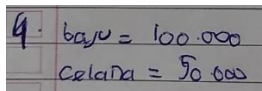 4. baju = 100.000
celana = 50.000